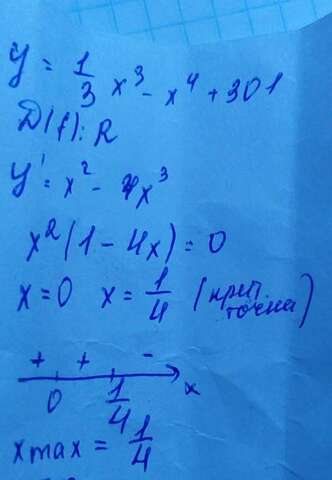 y = 1/3 x³ - x⁴ + 301
D(f): R
y' = x² - 4x³
x²(1 - 4x) = 0
x = 0 x = 1/4 (крит. точка)
+ + -
0 1/4 x
xmax = 1/4